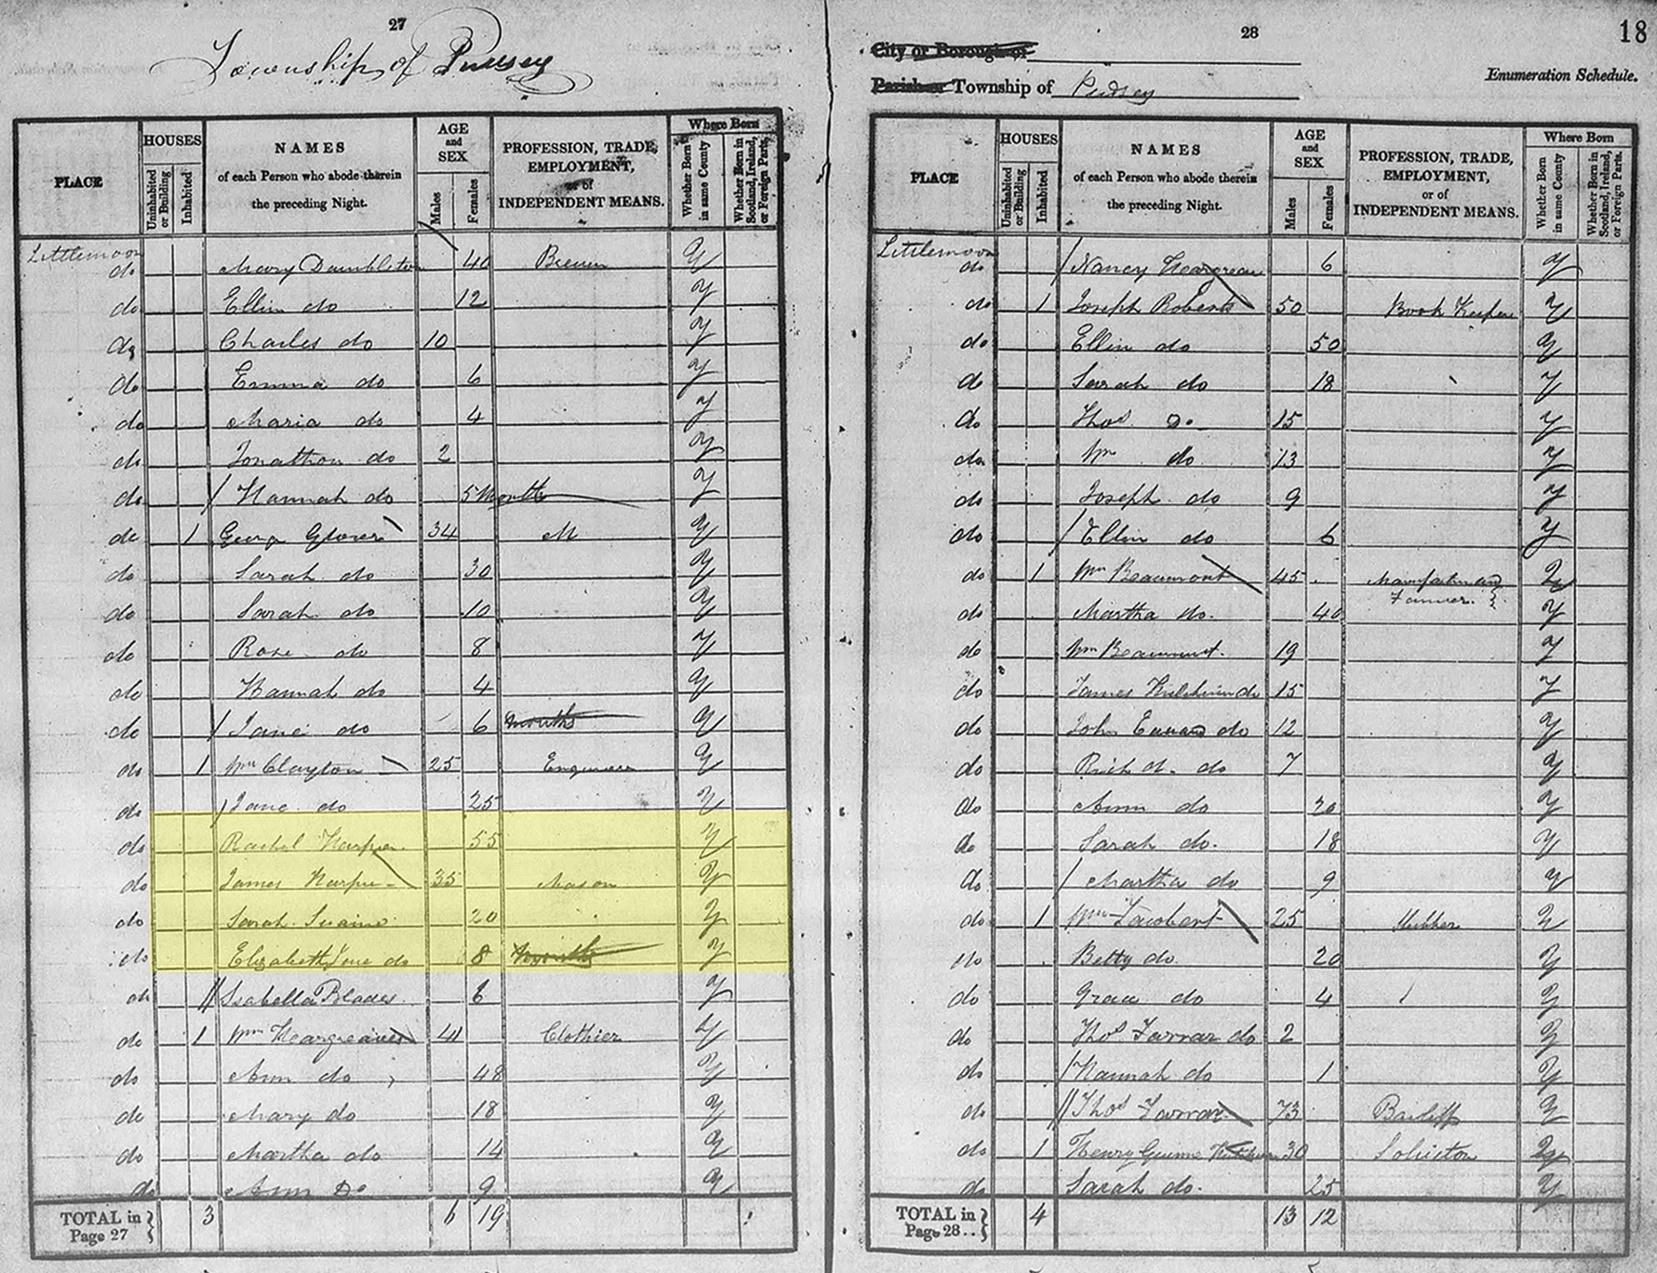 27
Township of Pudsey
PLACE
HOUSES
Uninhabited or Building
Inhabited
NAMES
of each Person who abode therein
the preceding Night.
AGE
and
SEX
Males
Females
PROFESSION, TRADE,
EMPLOYMENT,
or of
INDEPENDENT MEANS.
Where Born
Whether Born in same County
Whether Born in Scotland, Ireland, or Foreign Parts.
Littlemoor
do Mary Dumbleton 40 Y
do Ellin do 12 Y
do Charles do 10 Y
do Emma do 6 Y
do Maria do 4 Y
do Jonathon do 2 Y
do / Hannah do 5 Months Y
do 1 Georg Glover 34 M Y
do Sarah do 30 Y
do Sarah do 10 Y
do Rose do 8 Y
do Hannah do 4 Y
do / Jane do 6 months Y
do 1 Wm Clayton 25 Engineer Y
do / Jane do 25 Y
do Rachel Harper 55 Y
do James Harper 35 Mason Y
do Sarah Suaine 20 Y
do Elizabeth Jane do 8 Months Y
do // Isabella Blades 6 Y
do 1 Wm Heargreaves 41 Clothier Y
do Ann do 48 Y
do Mary do 18 Y
do Martha do 14 Y
do Ann Do 9 Y
TOTAL in Page 27 } 3 6 19
28
18
City or Borough of
Parish or Township of Pudsey
Enumeration Schedule.
PLACE
HOUSES
Uninhabited or Building
Inhabited
NAMES
of each Person who abode therein
the preceding Night.
AGE
and
SEX
Males
Females
PROFESSION, TRADE,
EMPLOYMENT,
or of
INDEPENDENT MEANS.
Where Born
Whether Born in same County
Whether Born in Scotland, Ireland, or Foreign Parts.
Littlemoor
do / Nancy Heargreau 6 Y
do 1 Joseph Roberts 50 Book Keeper Y
do Ellin do 50 Y
do Sarah do 18 Y
do Thos Do 15 Y
do Wm do 13 Y
do Joseph do 9 Y
do / Ellin do 6 Y
do 1 Wm Beaumont 45 Y
Farmer
do Martha do. 40 Y
do Wm Beaumont 19 Y
do James do 15 Y
do John Edward do 12 Y
do Richd. do 7 Y
do Ann do 20 Y
do Sarah do. 18 Y
do / Martha do 9 Y
do 1 Wm 25 Y
do Betty do 20 Y
do Grace do 4 Y
do Thos Farrar do 2 Y
do / Hannah do 1 Y
do // Thos Farrar 73 Bailiff Y
do 1 Henry 30 Solicitor
do Sarah do. 25 Y
TOTAL in Page 28.. } 4 13 12